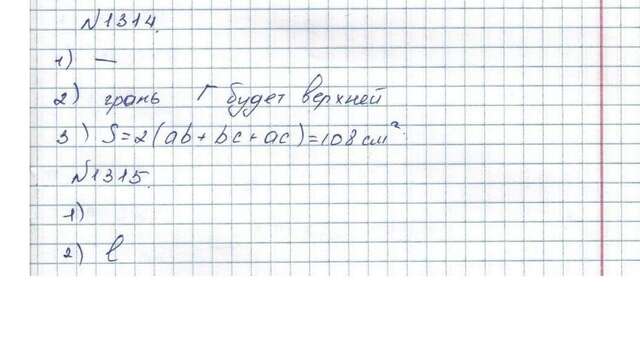 №1314.
1) —
2) грань Г будет верхней
3) S=2(ab+bc+ac)=108 см².
№1315.
1)
2) l